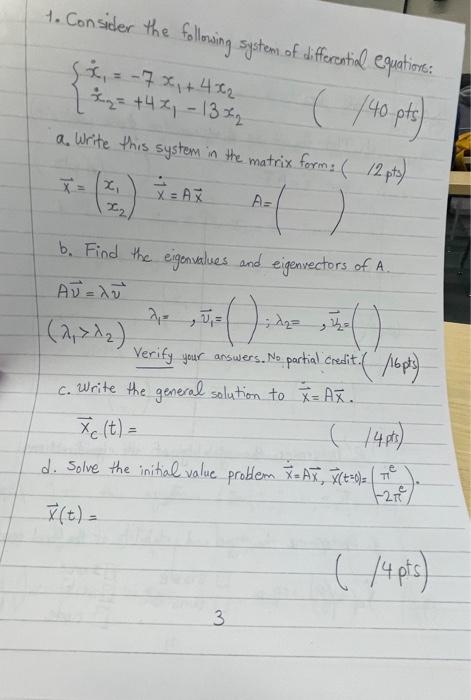 1. Consider the following system of differential equations:
ẋ₁ = -7x₁+4x₂
ẋ₂ = +4x₁ - 13x₂ ( /40 pts)
a. Write this system in the matrix form: ( /2 pts)
x⃗ = (x₁ x₂) ẋ⃗ = Ax⃗ A= ( )
b. Find the eigenvalues and eigenvectors of A.
Av⃗ = λv⃗
(λ₁>λ₂) λ₁= , v⃗₁= ( ) ; λ₂= , v⃗₂= ( )
Verify your answers. No partial credit. ( /16pts)
c. Write the general solution to ẋ⃗ = Ax⃗.
x⃗c(t) = ( /4pts)
d. Solve the initial value problem ẋ⃗=Ax⃗, x⃗(t=0)= (πᵉ -2πᵉ).
x⃗(t) =
( /4pts)
3